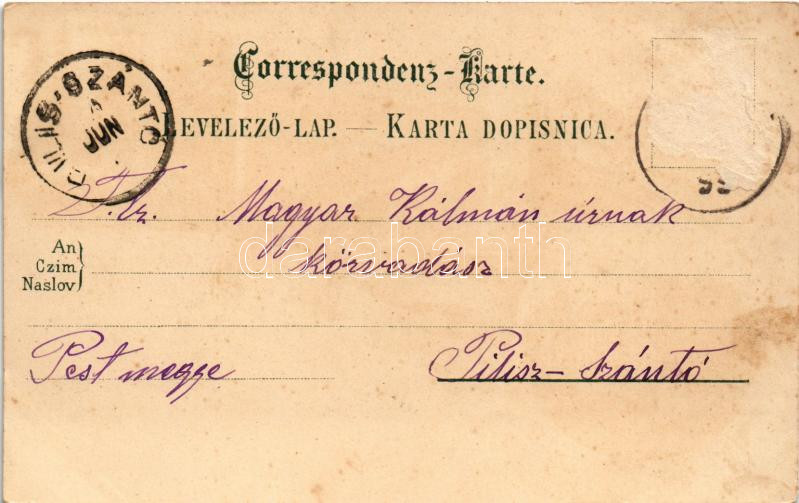 Correspondenz-Karte.
LEVELEZŐ-LAP. — KARTA DOPISNICA.
PILIS-SZÁNTÓ
JUN
99
T.cz. Magyar Kálmán úrnak
An
Czim
Naslov
körvadász
Pest megye
Pilisz-Szántó
darabanth